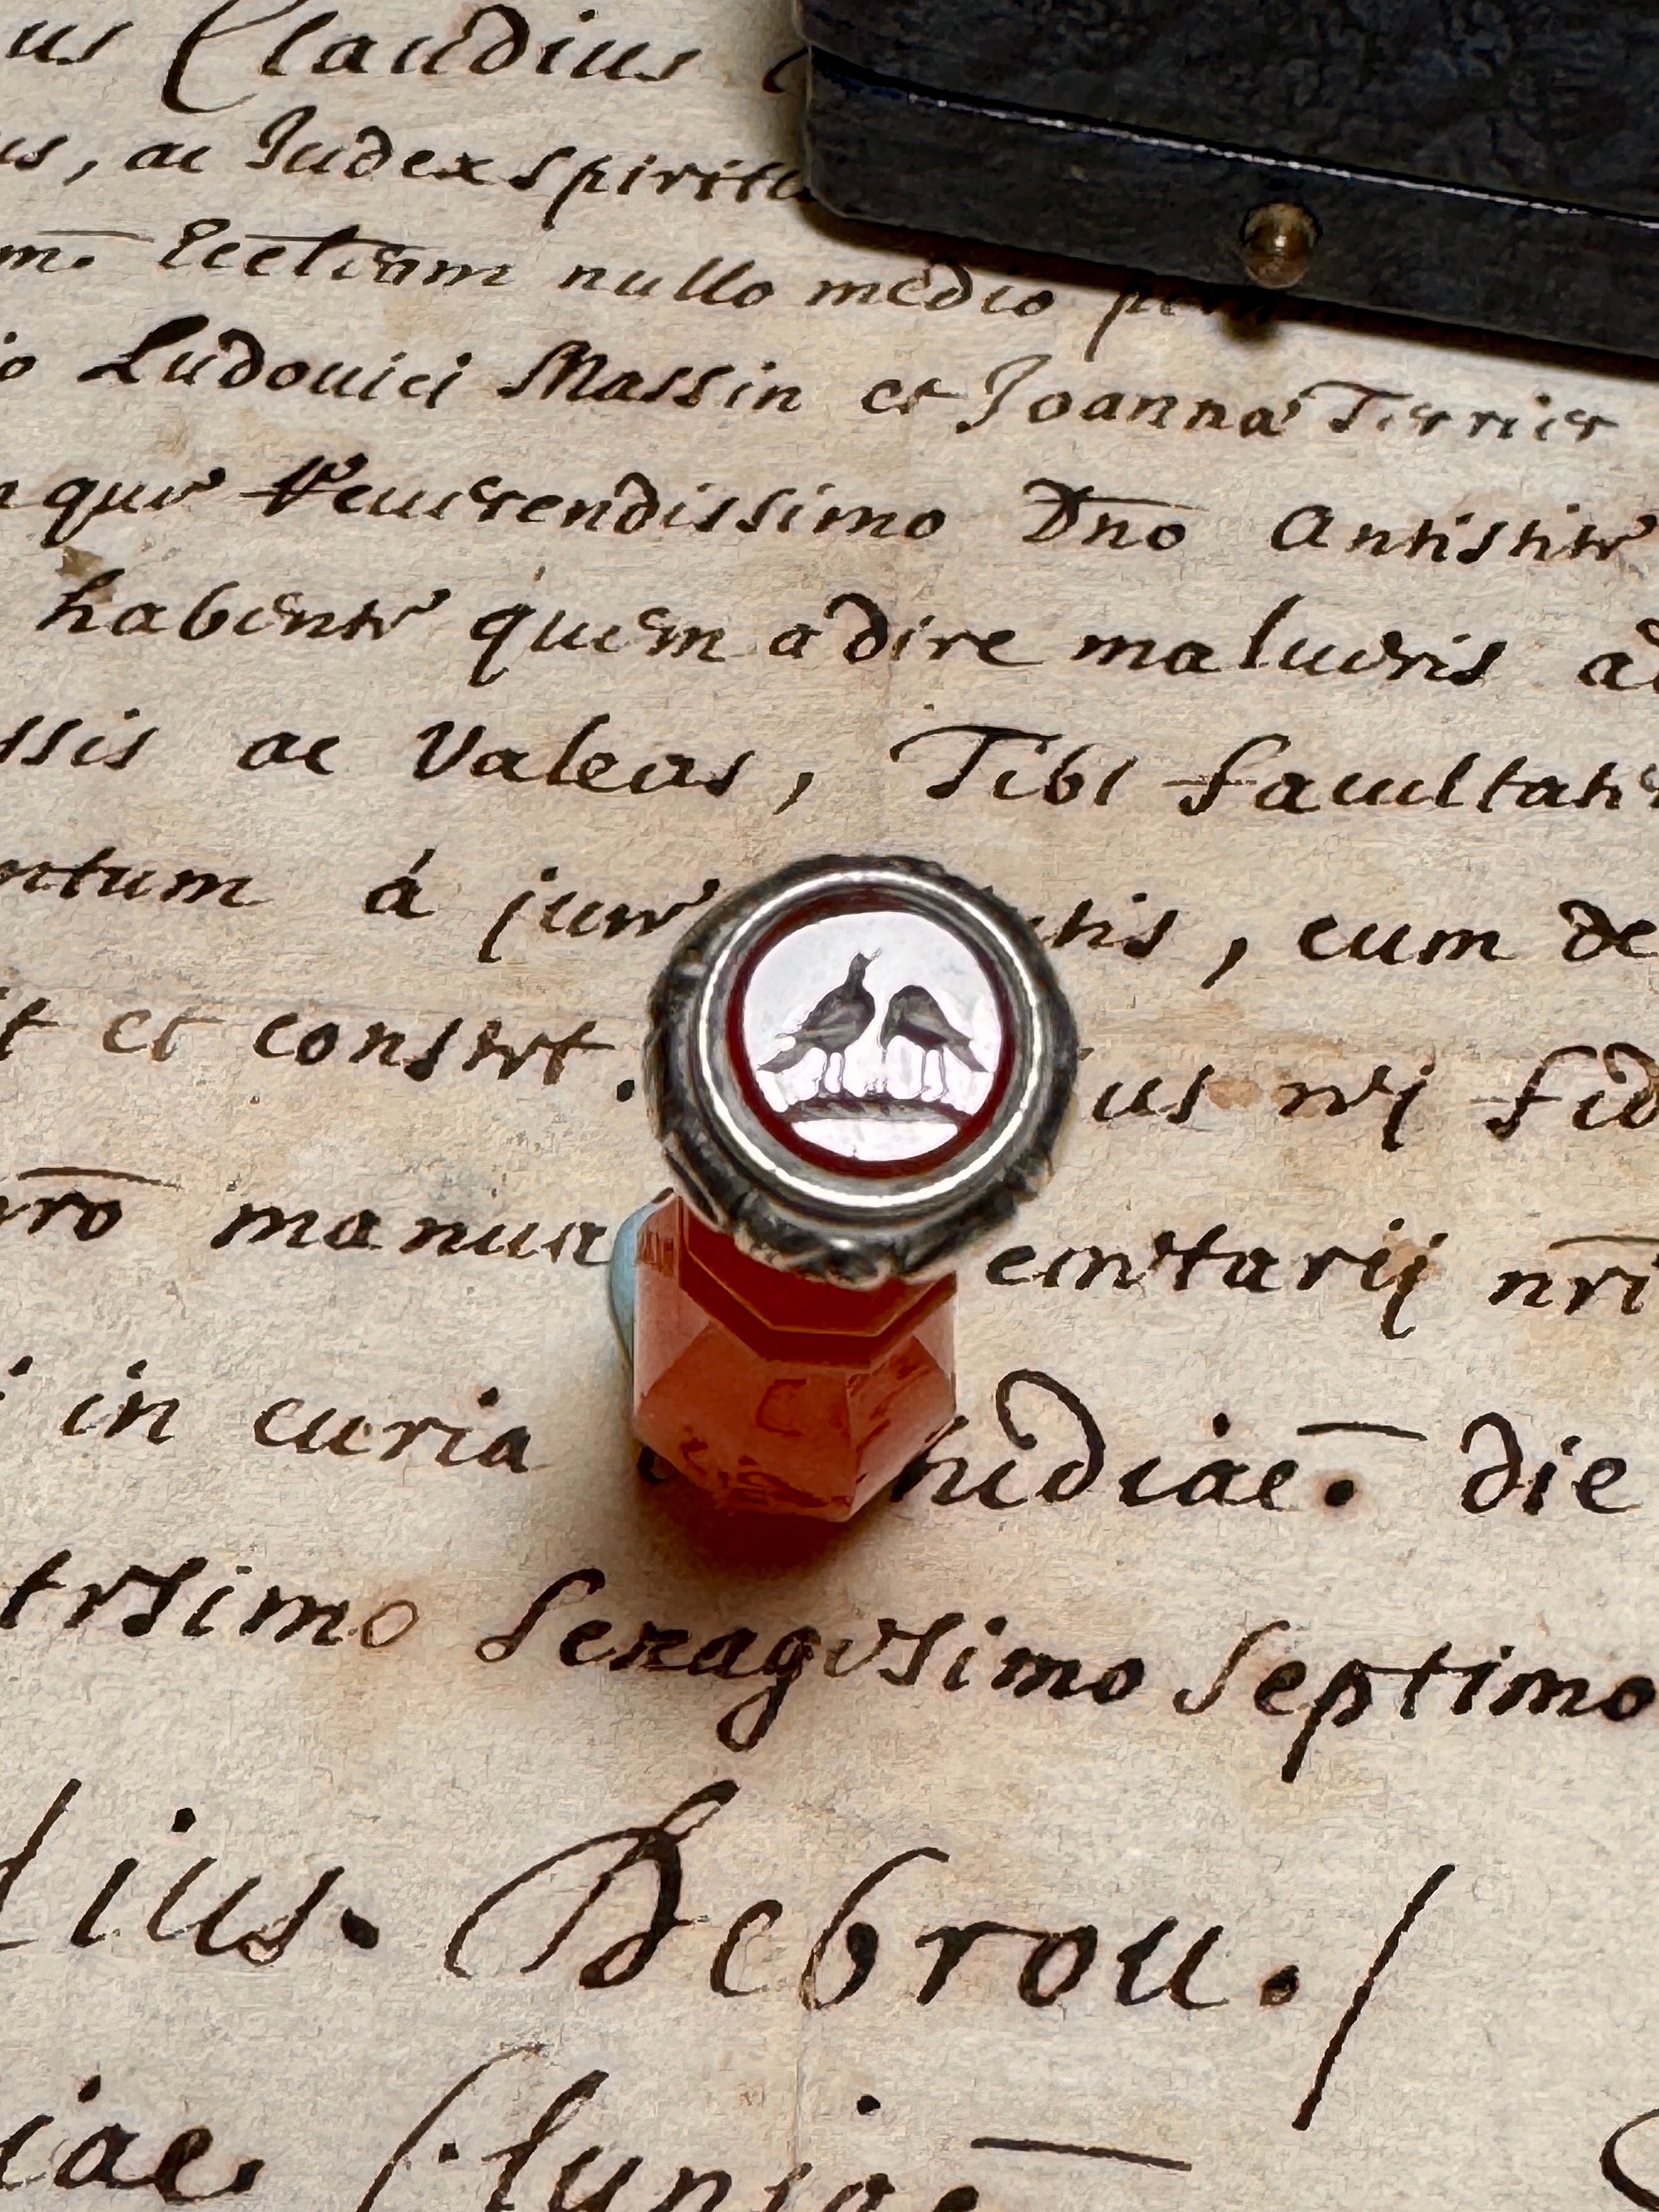 us Claudius
us, ac Judex Spiritu
m. Eccl̄iam nullo medio per
io Ludouici Massin et Joanna Terrier
que Reuerendissimo Dn̄o Antistite
habente quem adire malueris ad
ssis ac Valeas, Tibi facultate
ntum á jure ntis, cum de
t et conseet. ius rei fid
ro manua emetarij nri
in curia nidiae. die
tesimo Sexagesimo Septimo
dius. Debrou./
iae Cluniae